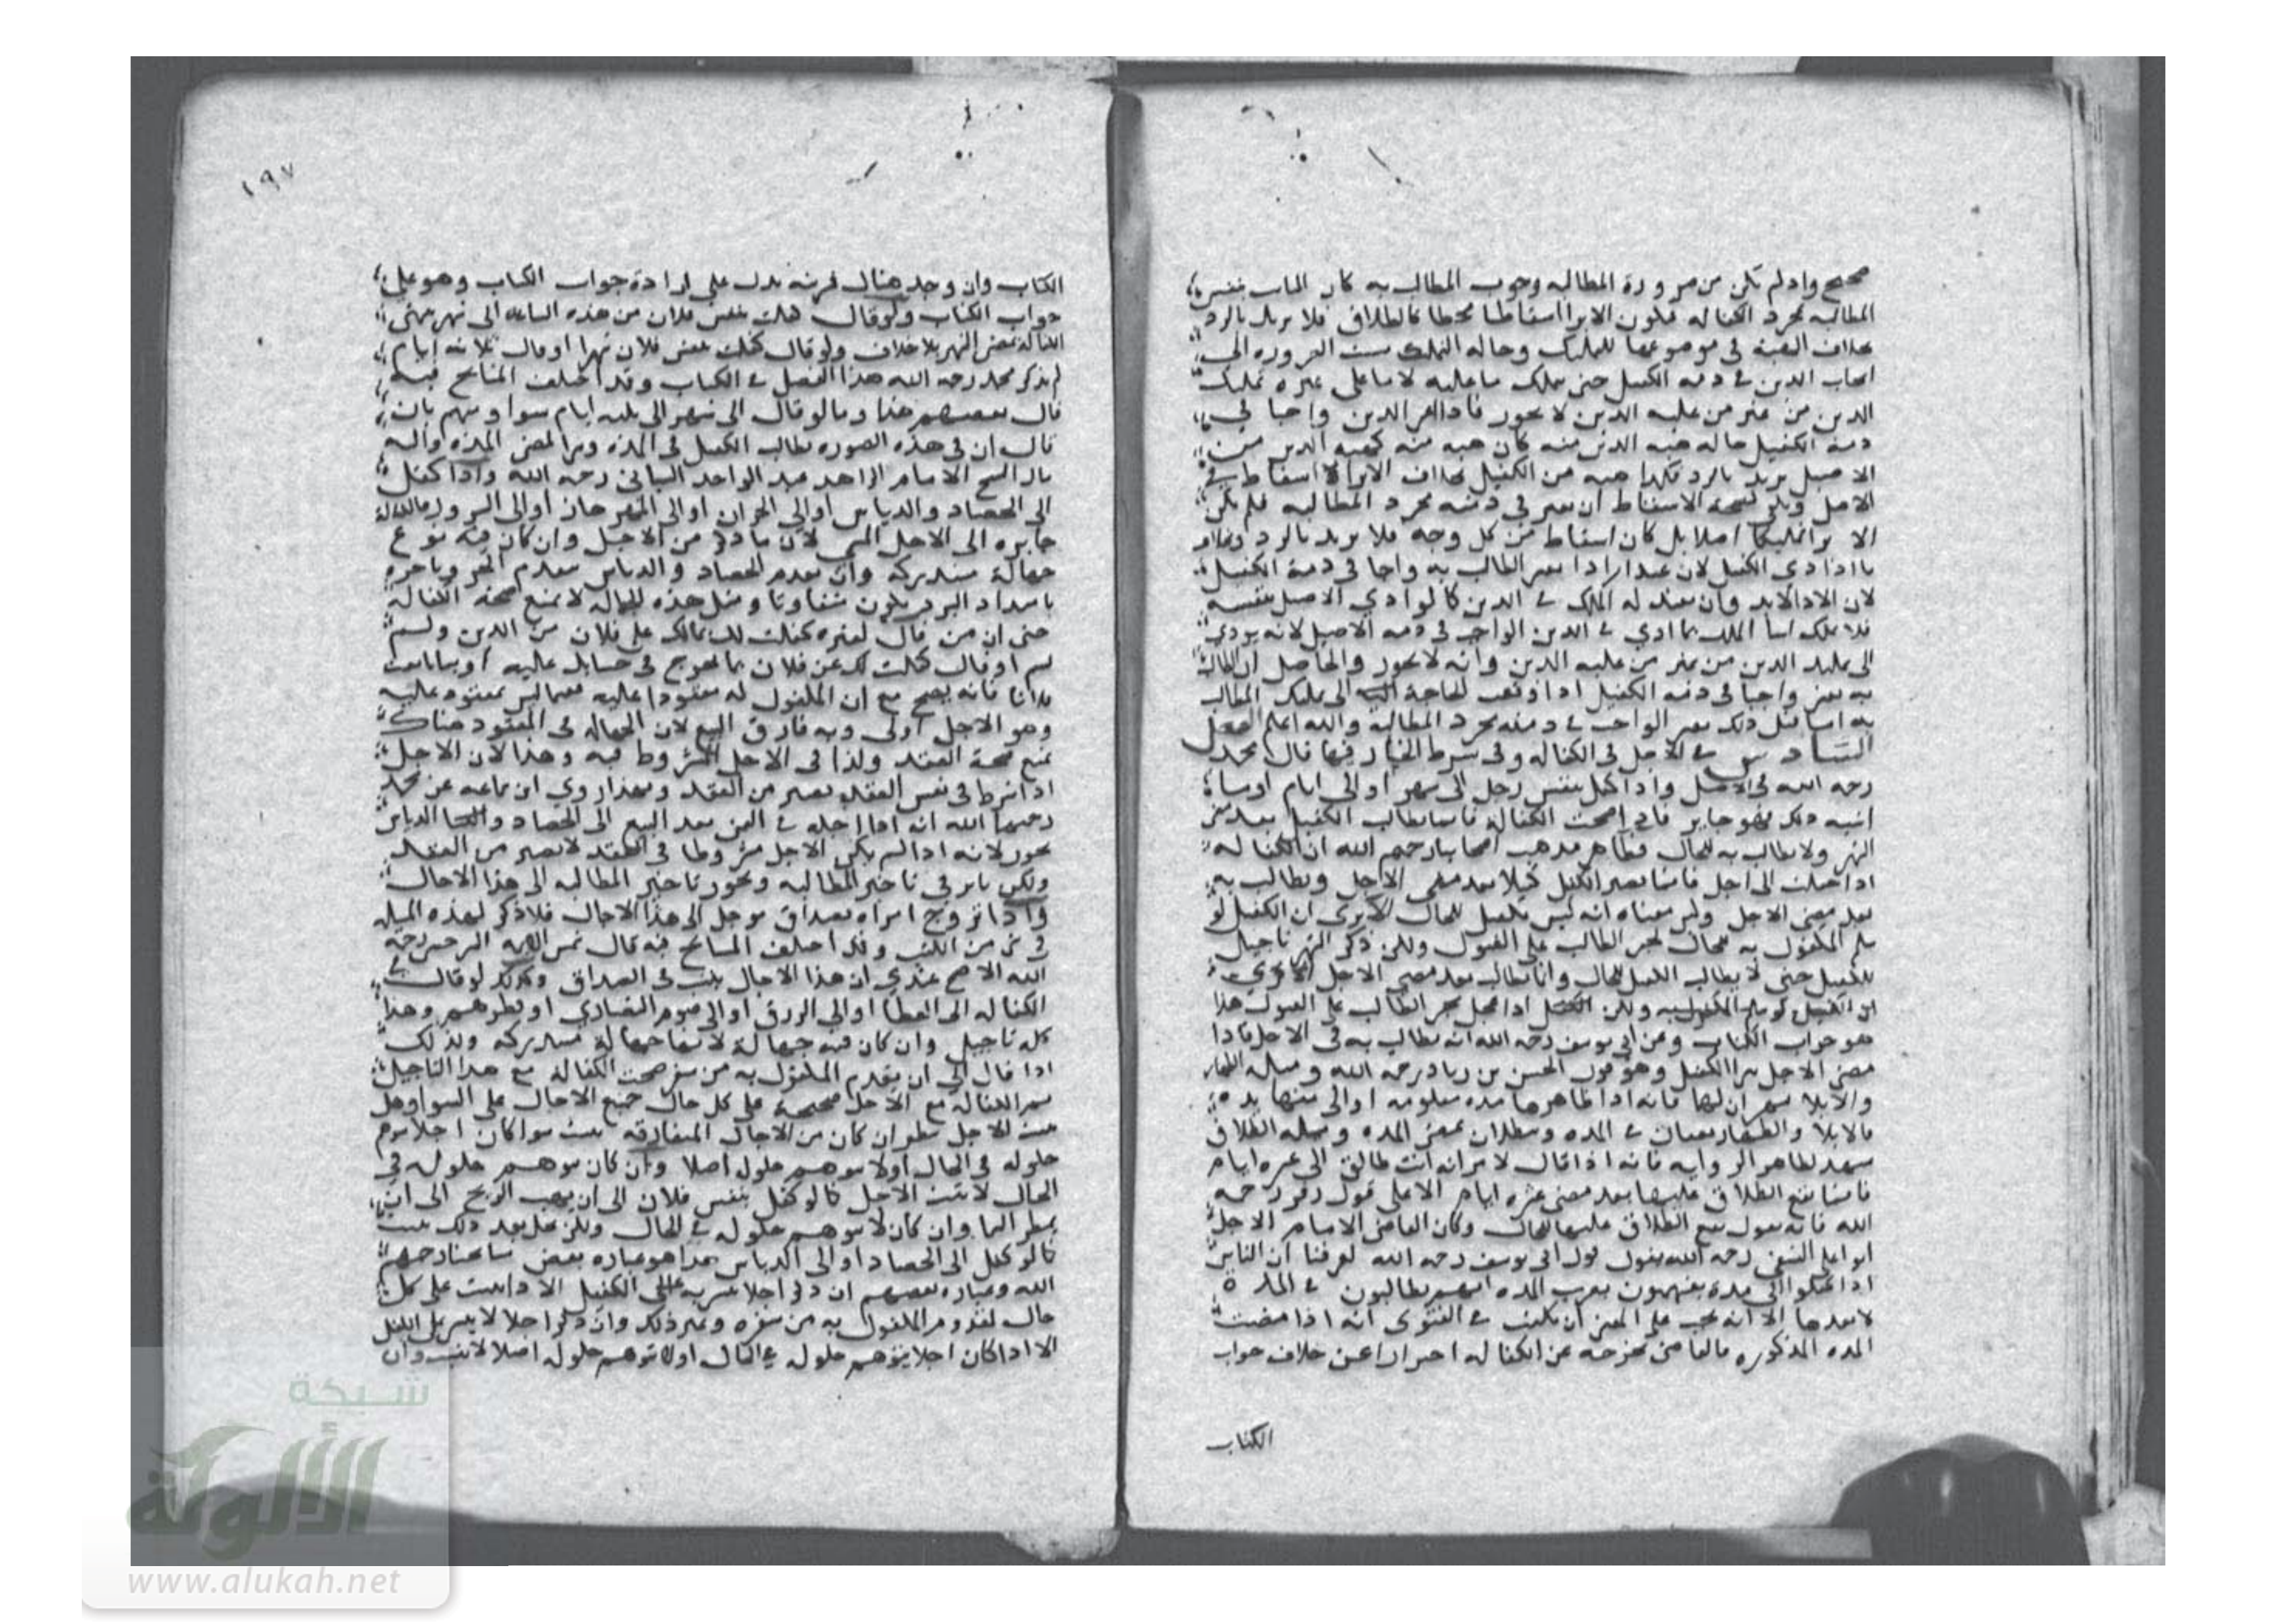 صحيح واذ لم تكن من ضرورة المطالبه وجوب المطالب به كان الثابت بنفس
المطالبه مجرد الكفاله فيكون الابرا اسقاطا محضا كالطلاق فلا يرتد بالرد
بخلاف الهبة فى موضوعها للتمليك وحاله التمليك ست الضروره الى
ايجاب الدين فى ذمه الكفيل حتى يملك ما عليه لا ما على غيره تمليك
الدين من غير من عليه الدين لا يجوز فاذا اعتبر الدين واجبا فى
ذمة الكفيل حاله هبه الدين منه كان هبه منه كهبه الدين من
الاصيل يرتد بالرد فكذا هبه من الكفيل بخلاف الابرا لا اسقاط فى
الاصل ويكفى لصحة الاسقاط ان يعتبر فى ذمته مجرد المطالبه فلم يكن
الابرا تمليكا اصلا بل كان اسقاط من كل وجه فلا يرتد بالرد وبخلاف
ما اذا ادى الكفيل لان عند الادا يعتبر المطالب به واجبا فى ذمة الكفيل
لان الادا لابد وان يفيد له الملك فى الدين كما لو ادى الاصيل بنفسه
فلا يملك اثبات الملك بما ادى فى الدين الواجب فى ذمه الاصيل لانه يودى
الى تمليك الدين من غير من عليه الدين وانه لا يجوز والحاصل ان المطالب
به يعتبر واجبا فى ذمه الكفيل اذا وقعت الحاجة الى تمليك المطالب
به اما قبل ذلك يعتبر الواجب فى ذمته مجرد المطالبة والله اعلم الفصل
السادس فى الاجل فى الكفاله وفى شرط الخيار فيها قال محمد
رحمه الله فى الاصل واذا كفل بنفس رجل الى شهر او الى ايام او ما
اشبه ذلك فهو جايز فاذا صحت الكفالة فانما يطالب الكفيل بعد مضى
الشهر ولا يطالب به للحال فظاهر مذهب اصحابنا رحمهم الله ان الكفاله
اذا حصلت الى اجل فانما يصير الكفيل كفيلا بعد مضى الاجل ويطالب به
بعد مضى الاجل وليس معناه انه ليس بكفيل للحال الا يرى ان الكفيل لو
سلم المكفول به للحال يجبر الطالب على القبول ولكن ذكر الشهر تاجيل
للكفيل حتى لا يطالب الكفيل للحال وانما يطالب بعد مضى الاجل الا يرى
ان الكفيل لو سلم المكفول به ولكن الكفيل اذا عجل يجبر الطالب على القبول هذا
هو جواب الكتاب وعن ابى يوسف رحمه الله انه يطالب به فى الاجل فاذا
مضى الاجل يبرا الكفيل وهو قول الحسن بن زياد رحمه الله ومسله الظهار
والايلا
فالايلا والظهار يقعان فى المده ويبطلان بمضى المده ومسله الطلاق
تشهد لظاهر الروايه فانه اذا قال لامراته انت طالق الى عشره ايام
فانما يقع الطلاق عليها بعد مضى عشره ايام الا على قول زفر رحمه
الله فانه يقول يقع الطلاق عليها للحال وكان القاضى الامام الاجل
ابو على النسفى رحمه الله يقول قول ابى يوسف رحمه الله لعرفنا ان الناس
اذا كفلوا الى مدة يفهمون بضرب المده انهم يطالبون فى المدة
لا بعدها الا انه يجب على المفتى ان يكتب فى الفتوى انه اذا مضت
المده المذكوره فالقاضى يخرجه عن الكفاله احترازا عن خلاف جواب
الكتاب
١٩٧
الكتاب وان وجد هناك قرينه تدل على ارادة جواب الكتاب وهو على
جواب الكتاب ولو قال كفلت بنفس فلان من هذه الساعه الى شهر تنتهى
الكفالة بمضى الشهر بلا خلاف ولو قال كفلت بنفس فلان شهرا او قال ثلاثه ايام
لم يذكر محمد رحمه الله هذا الفصل فى الكتاب وقد اختلف المشايخ فيه
قال بعضهم هذا وما لو قال الى شهر الى ثلثه ايام سوا ومنهم من
قال ان فى هذه الصوره يطالب الكفيل فى المده ويبرا بمضى المده واليه
مال الشيخ الامام الزاهد عبد الواحد الشيبانى رحمه الله واذا كفل
الى الحصاد والدياس او الى الجزاز او الى المهرجان او الى النيروز فالكفالة
جايزه الى الاجل المسمى لان ما ذكر من الاجل وان كان فيه نوع
جهالة مستدركه وان تقدم الحصاد والدياس بتقدم الحر وتاخره
بامتداد البرد يكون متفاوتا ومثل هذه الجهاله لا تمنع صحة الكفاله
حتى ان من قال لغيره كفلت لك بمالك على فلان من الدين ولم
يسم او قال كفلت لك عن فلان بما يخرج فى حسابك عليه او بما بايعت
فلانا فانه يصح مع ان المكفول له معقودا عليه فما ليس بمعقود عليه
وهو الاجل اولى وبه فارق البيع لان الجهاله فى المعقود هناك
تمنع صحة العقد ولذا فى الاجل المشروط فيه وهذا لان الاجل
اذا شرط فى نفس العقد يعتبر من العقد وبهذا روى ابن سماعه عن محمد
رحمهما الله انه اذا اجله فى الثمن بعد البيع الى الحصاد والدياس
يجوز لانه اذا لم يكن الاجل مشروطا فى العقد لا يصير من العقد
ولكن تاثيره فى تاخير المطالبه ويجوز تاخير المطالبه الى هذا الاجال
واذا تزوج امراه بصداق موجل الى هذا الاجال فلا ذكر لهذه المسله
فى شى من الكتب وقد اختلف المشايخ فيه قال شمس الايمه السرخسى رحمه
الله الاصح عندى ان هذا الاجال يثبت فى الصداق وكذلك لو قال فى
الكفاله الى العطا او الى الرزق او الى صوم النصارى او فطرهم وهذا
كله تاجيل وان كان فيه جهالة لانها جهالة مستدركه وكذلك
اذا قال الى ان يقدم المكفول به من سفر صحت الكفالة مع هذا التاجيل
ثم الكفاله مع الاجل صحيحة على كل حال جميع الاجال على السوا وهل
يثبت الاجل ينظر ان كان من الاجال المتعارفه يثبت سوا كان اجلا يتوهم
حلوله فى الحال او لا يتوهم حلول اصلا وان كان يتوهم حلوله فى
الحال لا يثبت الاجل كما لو كفل بنفس فلان الى ان يهب الريح الى ان
يمطر السما وان كان لا يتوهم حلوله فى الحال ولكن يحل بعد ذلك يثبت
كما لو كفل الى الحصاد او الى الدياس هذا هو عباره بعض مشايخنا رحمهم
الله وعباره بعضهم ان ذكر اجلا يتسر به على الكفيل الادا يثبت على كل
حال كقدوم المكفول به من سفره وغير ذلك وان ذكر اجلا لا يتسر على الكفيل
الا اذا كان اجلا يتوهم حلوله فى الحال او لا يتوهم حلوله اصلا لا يثبت وان
شبكة
الألوكة
www.alukah.net